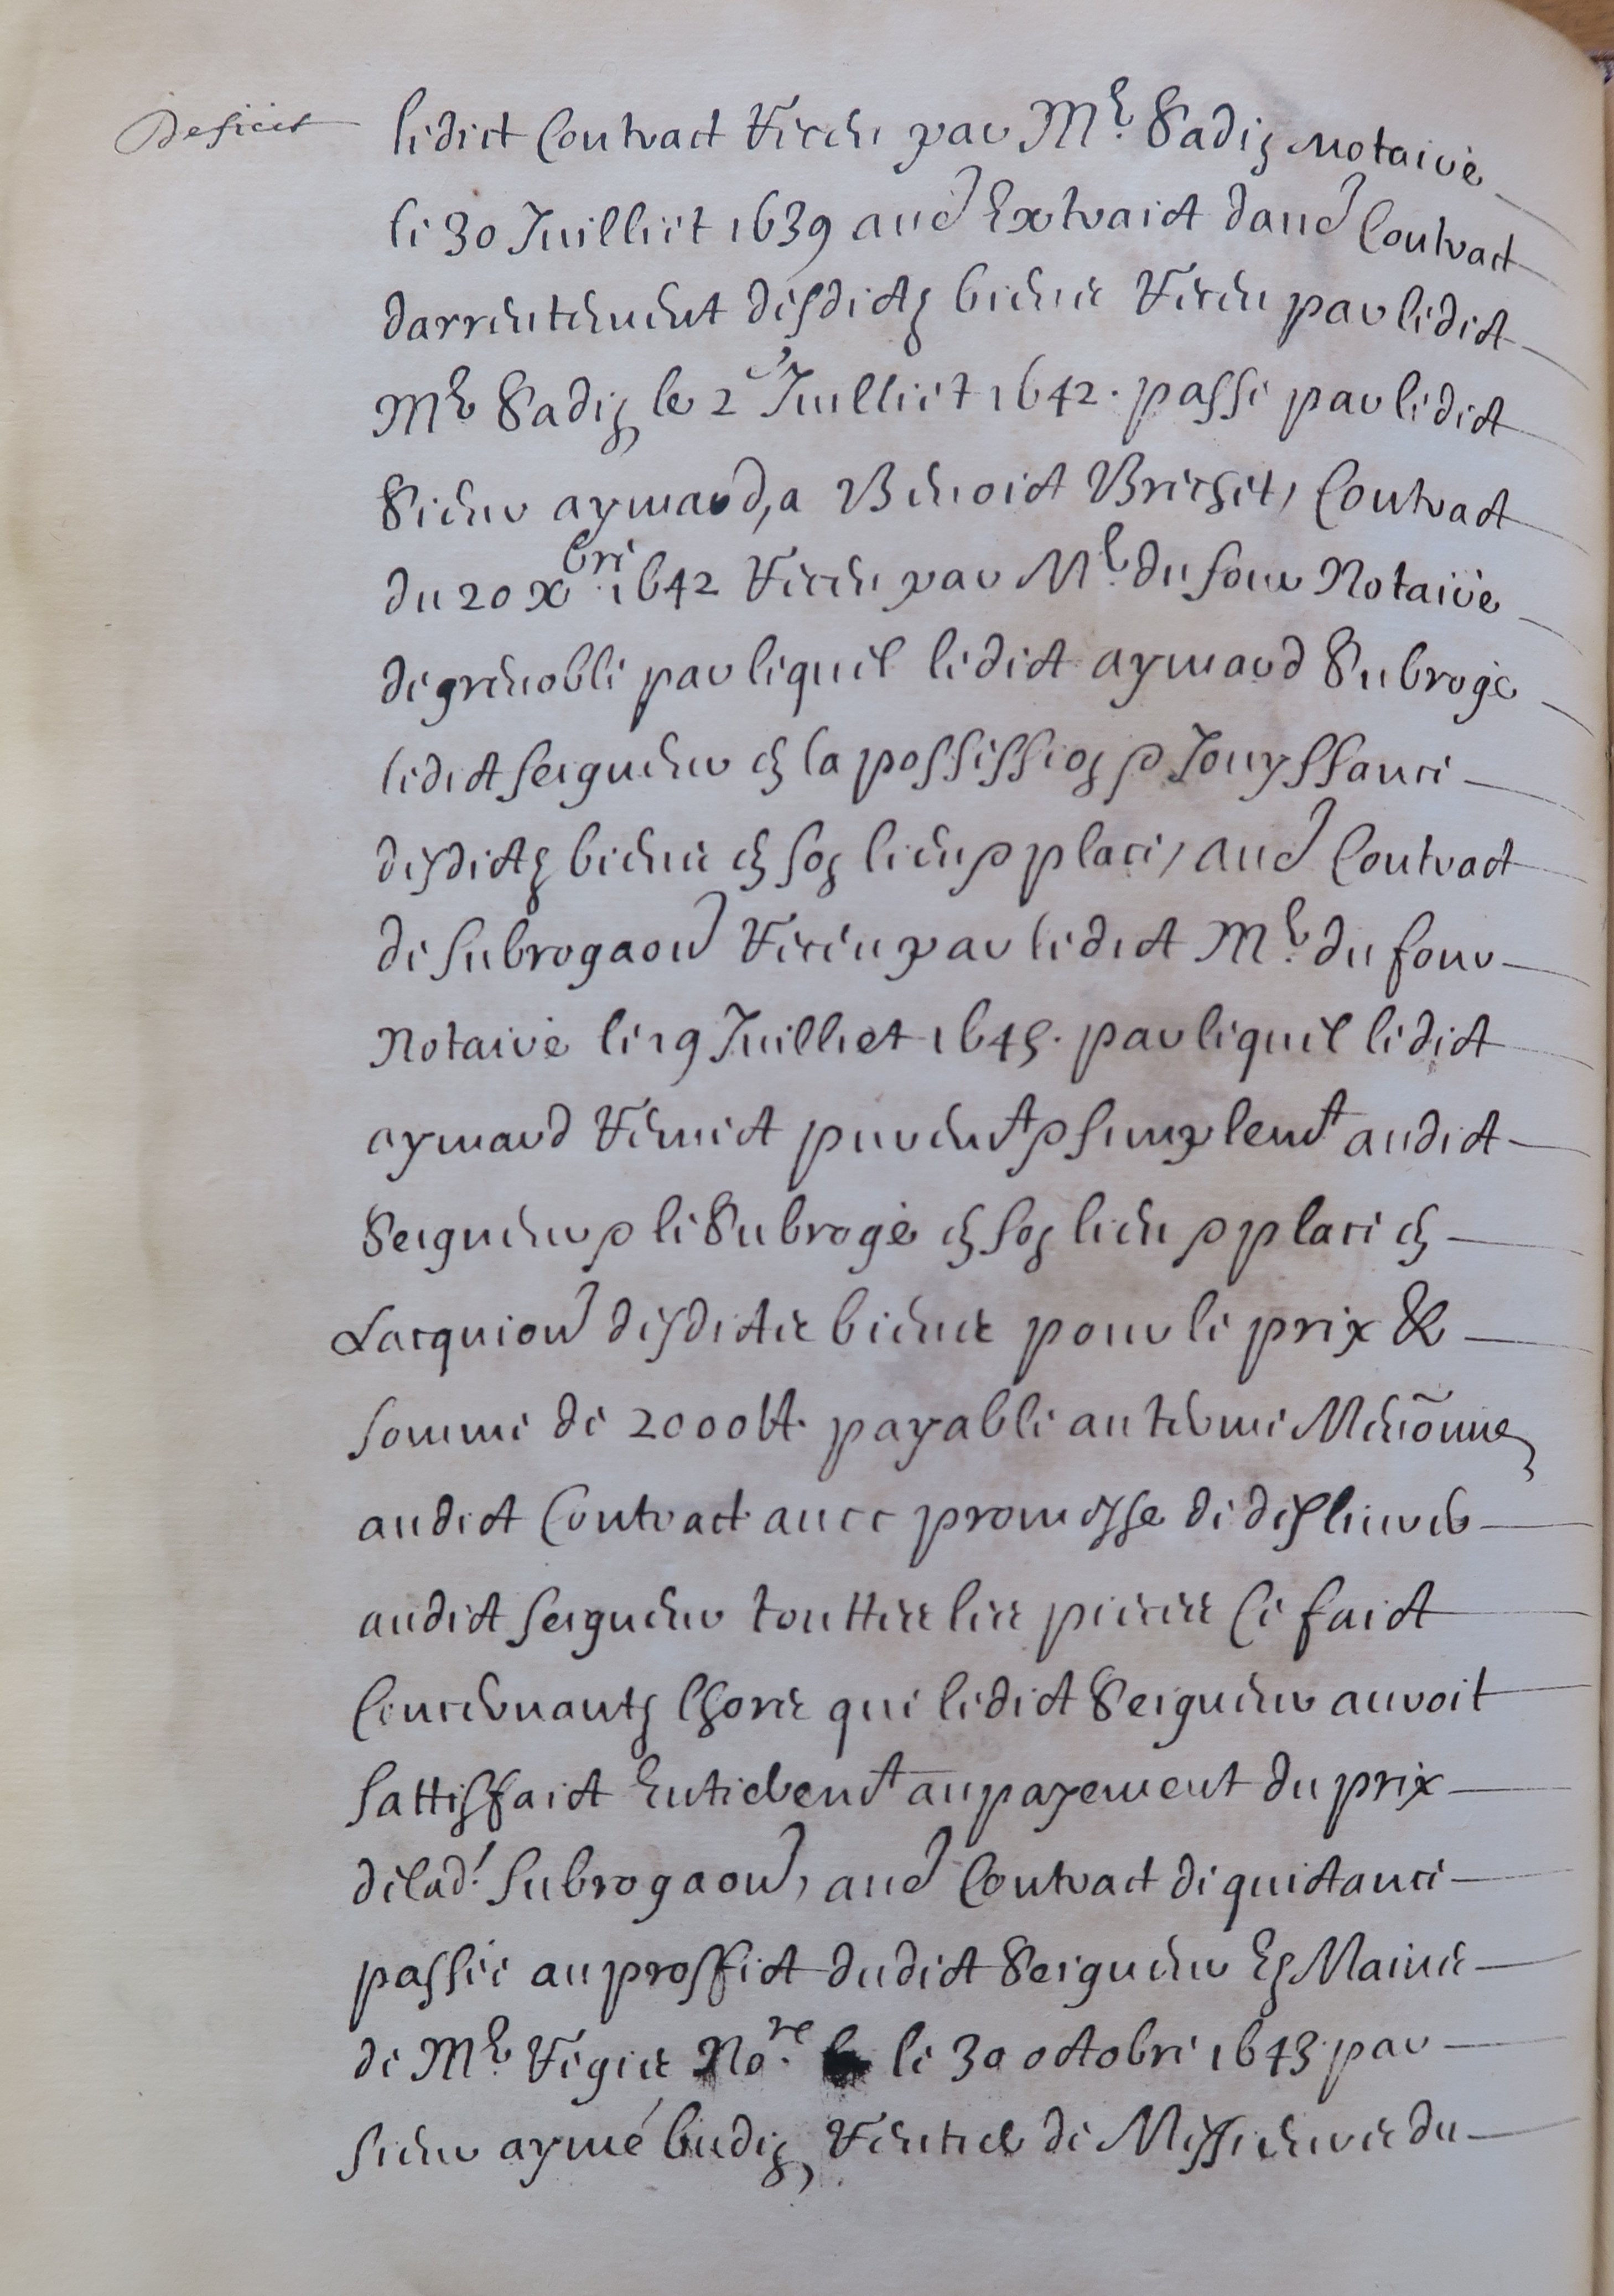 Deficit
ledict Contract Receu par Me Sadin Notaire
le 30 Juilliet 1639 aud Extraict daud Contract
darrentement desdictz biens Receu par ledict
Me Sadin le 2e Juilliet 1642. passé par ledict
Sieur aymard, a Benoict Brichet, Contract
du 20 xbre 1642 Receu par Me du four Notaire
de grenoble par lequel ledict aymard Subroge
ledict seigneur en la possession & Jouyssance
desdictz biens en son lieu & place, aud Contract
de subrogaon Receu par ledict Me du four
Notaire le 19 Juilliet 1645. par lequel ledict
aymard Remect puremt & simplemt audict
Seigneur & le Subroge en son lieu & place en
Lacquion desdicts biens pour le prix &
somme de 2000 lt. payable au terme Menõnne
audict Contract auec promesse de deslieurer
audict seigneur touttes les pieces Ce faict
Concernantz lhors que ledict Seigneur auroit
sattisfaict Entieremt au payement du prix
de lad. subrogaon, aud Contract de quictance
passée au proffict dudict Seigneur Es Mains
de Me Regis Nore le 30 octobre 1643 par
sieur aymé budin, Rentier de Messieurs du